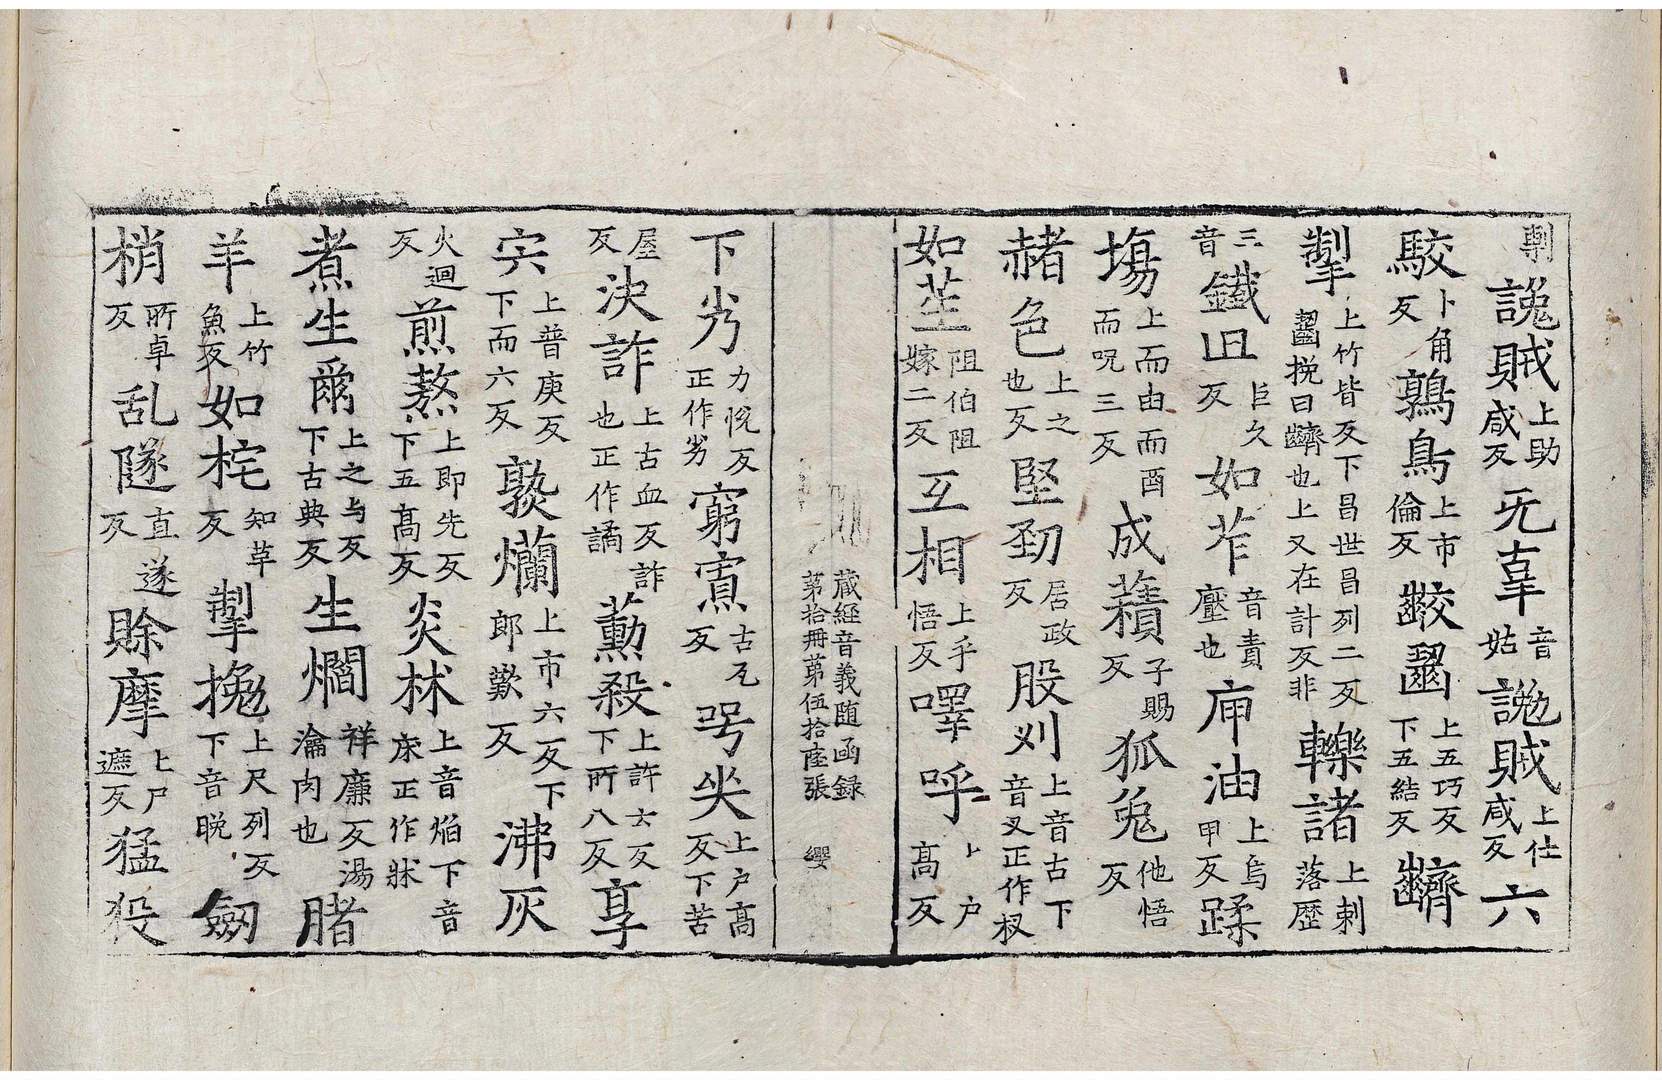 剸讒賊上助咸反无辜音姑讒賊上仕咸反六
駮卜角反鶉鳥上市倫反齩齧上五巧反下五結反齌
掣上竹皆反下昌世昌列二反齧挽曰齌也上又在計反非轢諸上剌落歴
三音鐵臼巨久反如苲音責壓也庘油上烏甲反蹂
塲上而由而酉而呪三反成𧂐子賜反狐兔他悟反
赭色上之也反堅劲居政反股刈上音古下音叉正作杈
如苼阻伯阻嫁二反互相上乎悟反嘷呼上户髙反
藏經音義随函録
第拾冊第伍拾陸張 纓
下劣力恱反正作劣窮賔古瓦反号哭上户髙反下苦
屋反决詐上古血反詐也正作譎勳殺上許士反下所八反享
宍上普庚反下而六反敦爛上市六反下郎歎反沸灰
火迴反煎熬上即先反下五髙反炎林上音焰下音床正作牀
煮生爾上之与反下古典反生爓祥廉反湯瀹肉也䐗
羊上竹魚反如㧌知草反掣挽上尺列反下音晚劒
梢所卓反乱隧直遂反賖摩上尸遮反猛殺